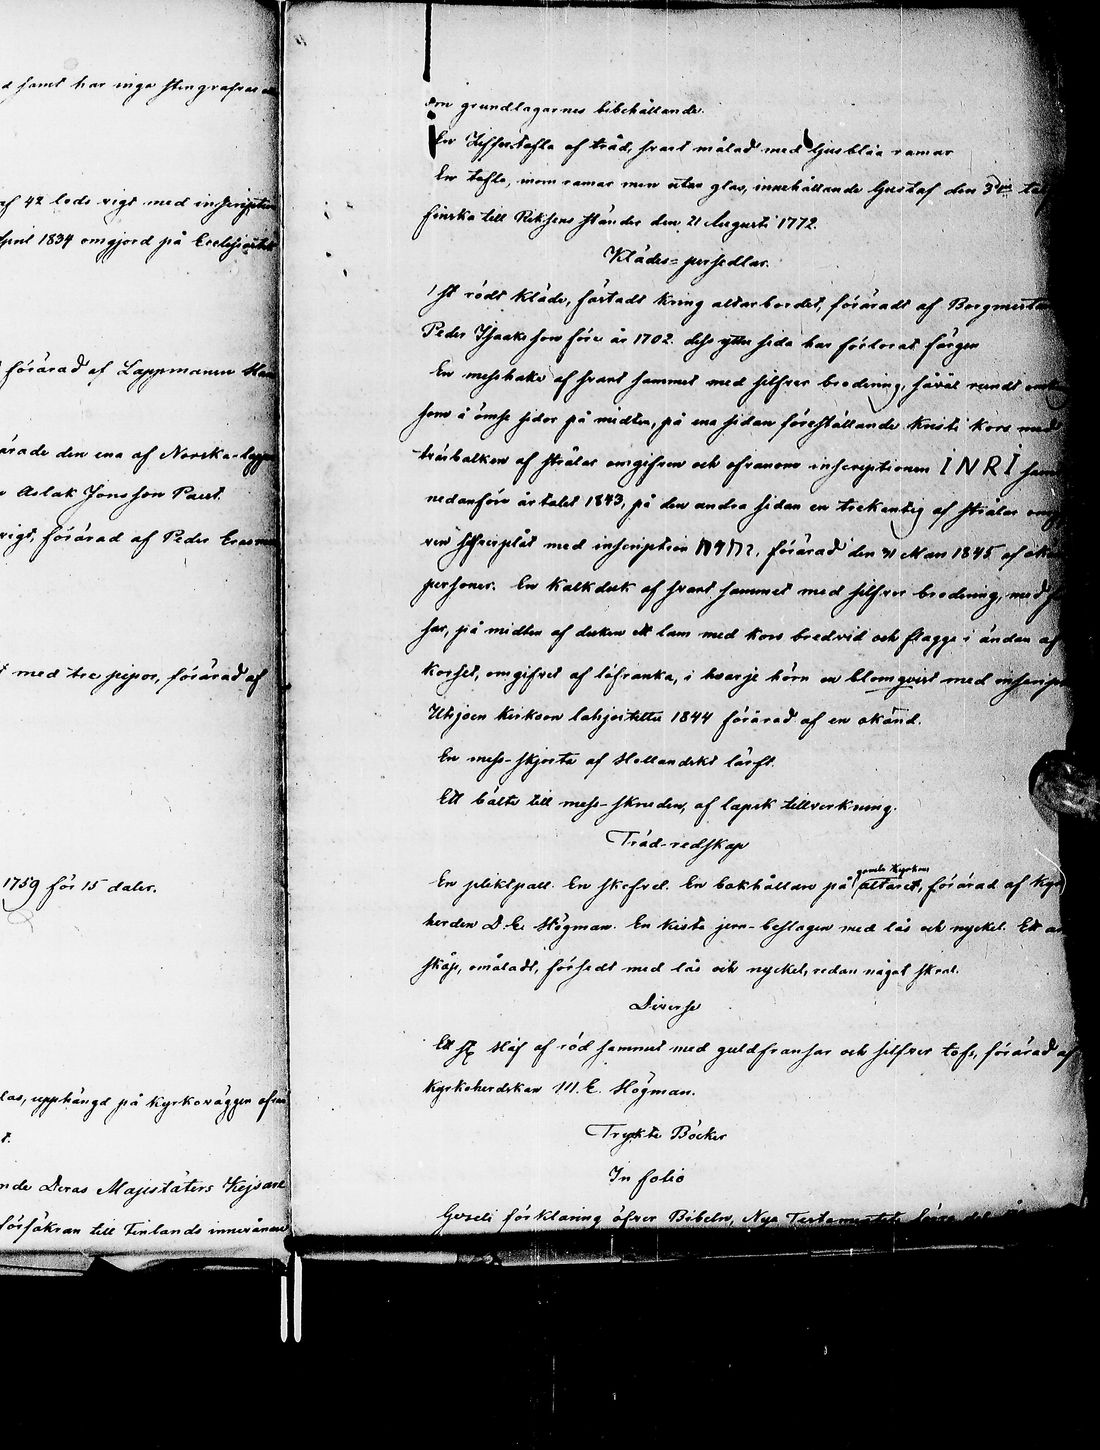 samt har inga
af 42 lods vigt med inscription
April 1834 omgjord på
förärad af Lappmannen
den ena af Norska
Aslak Jonsson Paest.
vigt, förärad af Peder
med tre pipor, förärad af
1759 för 15 daler.
upphängd på kyrkoväggen
Deras Majestäters
försäkran till Finlands innevånare
om grundlagarnes bibehållande.
En Ziffertafla af träd, svart målad med ljusblåa ramar
En tafla, inom ramar men utan glas, innehållande Gustaf den 3dies
till Riksens Ständer den 21 Augusti 1772.
Klädes=persedlar.
1 st rödt kläde, fästadt kring altarbordet, föräradt af
Peder Isaaksson före år 1702. dess yttre sida har förlorat färgen
En messhake af svart sammet med silfver brodering, såväl rundt
som å ömse sidor på midten, på ena sidan föreställande Kristi kors med
tvärbalken af strålar omgifven och ofvanom inscriptionen I N R I
nedanföre årtalet 1843, på den andra sidan en trekantig af strålar
silfverplåt med inscription יהוה, förärad den 31 Mars 1845 af
personer. En Kalkduk af svart sammet med silfver brodering, med
sar, på midten af duken ett lam med kors bredvid och flagga i ändan af
korset, omgifvet af löfranka, i hvarje hörn en blomqvist med
Utsjoen kirkoon lahjoitettu 1844 förärad af en okänd.
En mess-skjorta af Hollandskt lärft.
Ett bälte till mess-skruden, af lapsk tillverkning.
Träd-redskap
En pliktpall. En skofvel. En bokhållare på gamla kyrkans altaret, förärad af
herden D. E. Högman. En kista jern-beslagen med lås och nyckel. Ett
skåp, omåladt, försedt med lås och nyckel, redan något
Diverse
Ett st Håf af röd sammet med guldfransar och silfver tofs, förärad af
Kyrkoherdskan M. E. Högman.
Tryckta Böcker
In folio
förklaring öfver Bibeln, Nya Testamentets